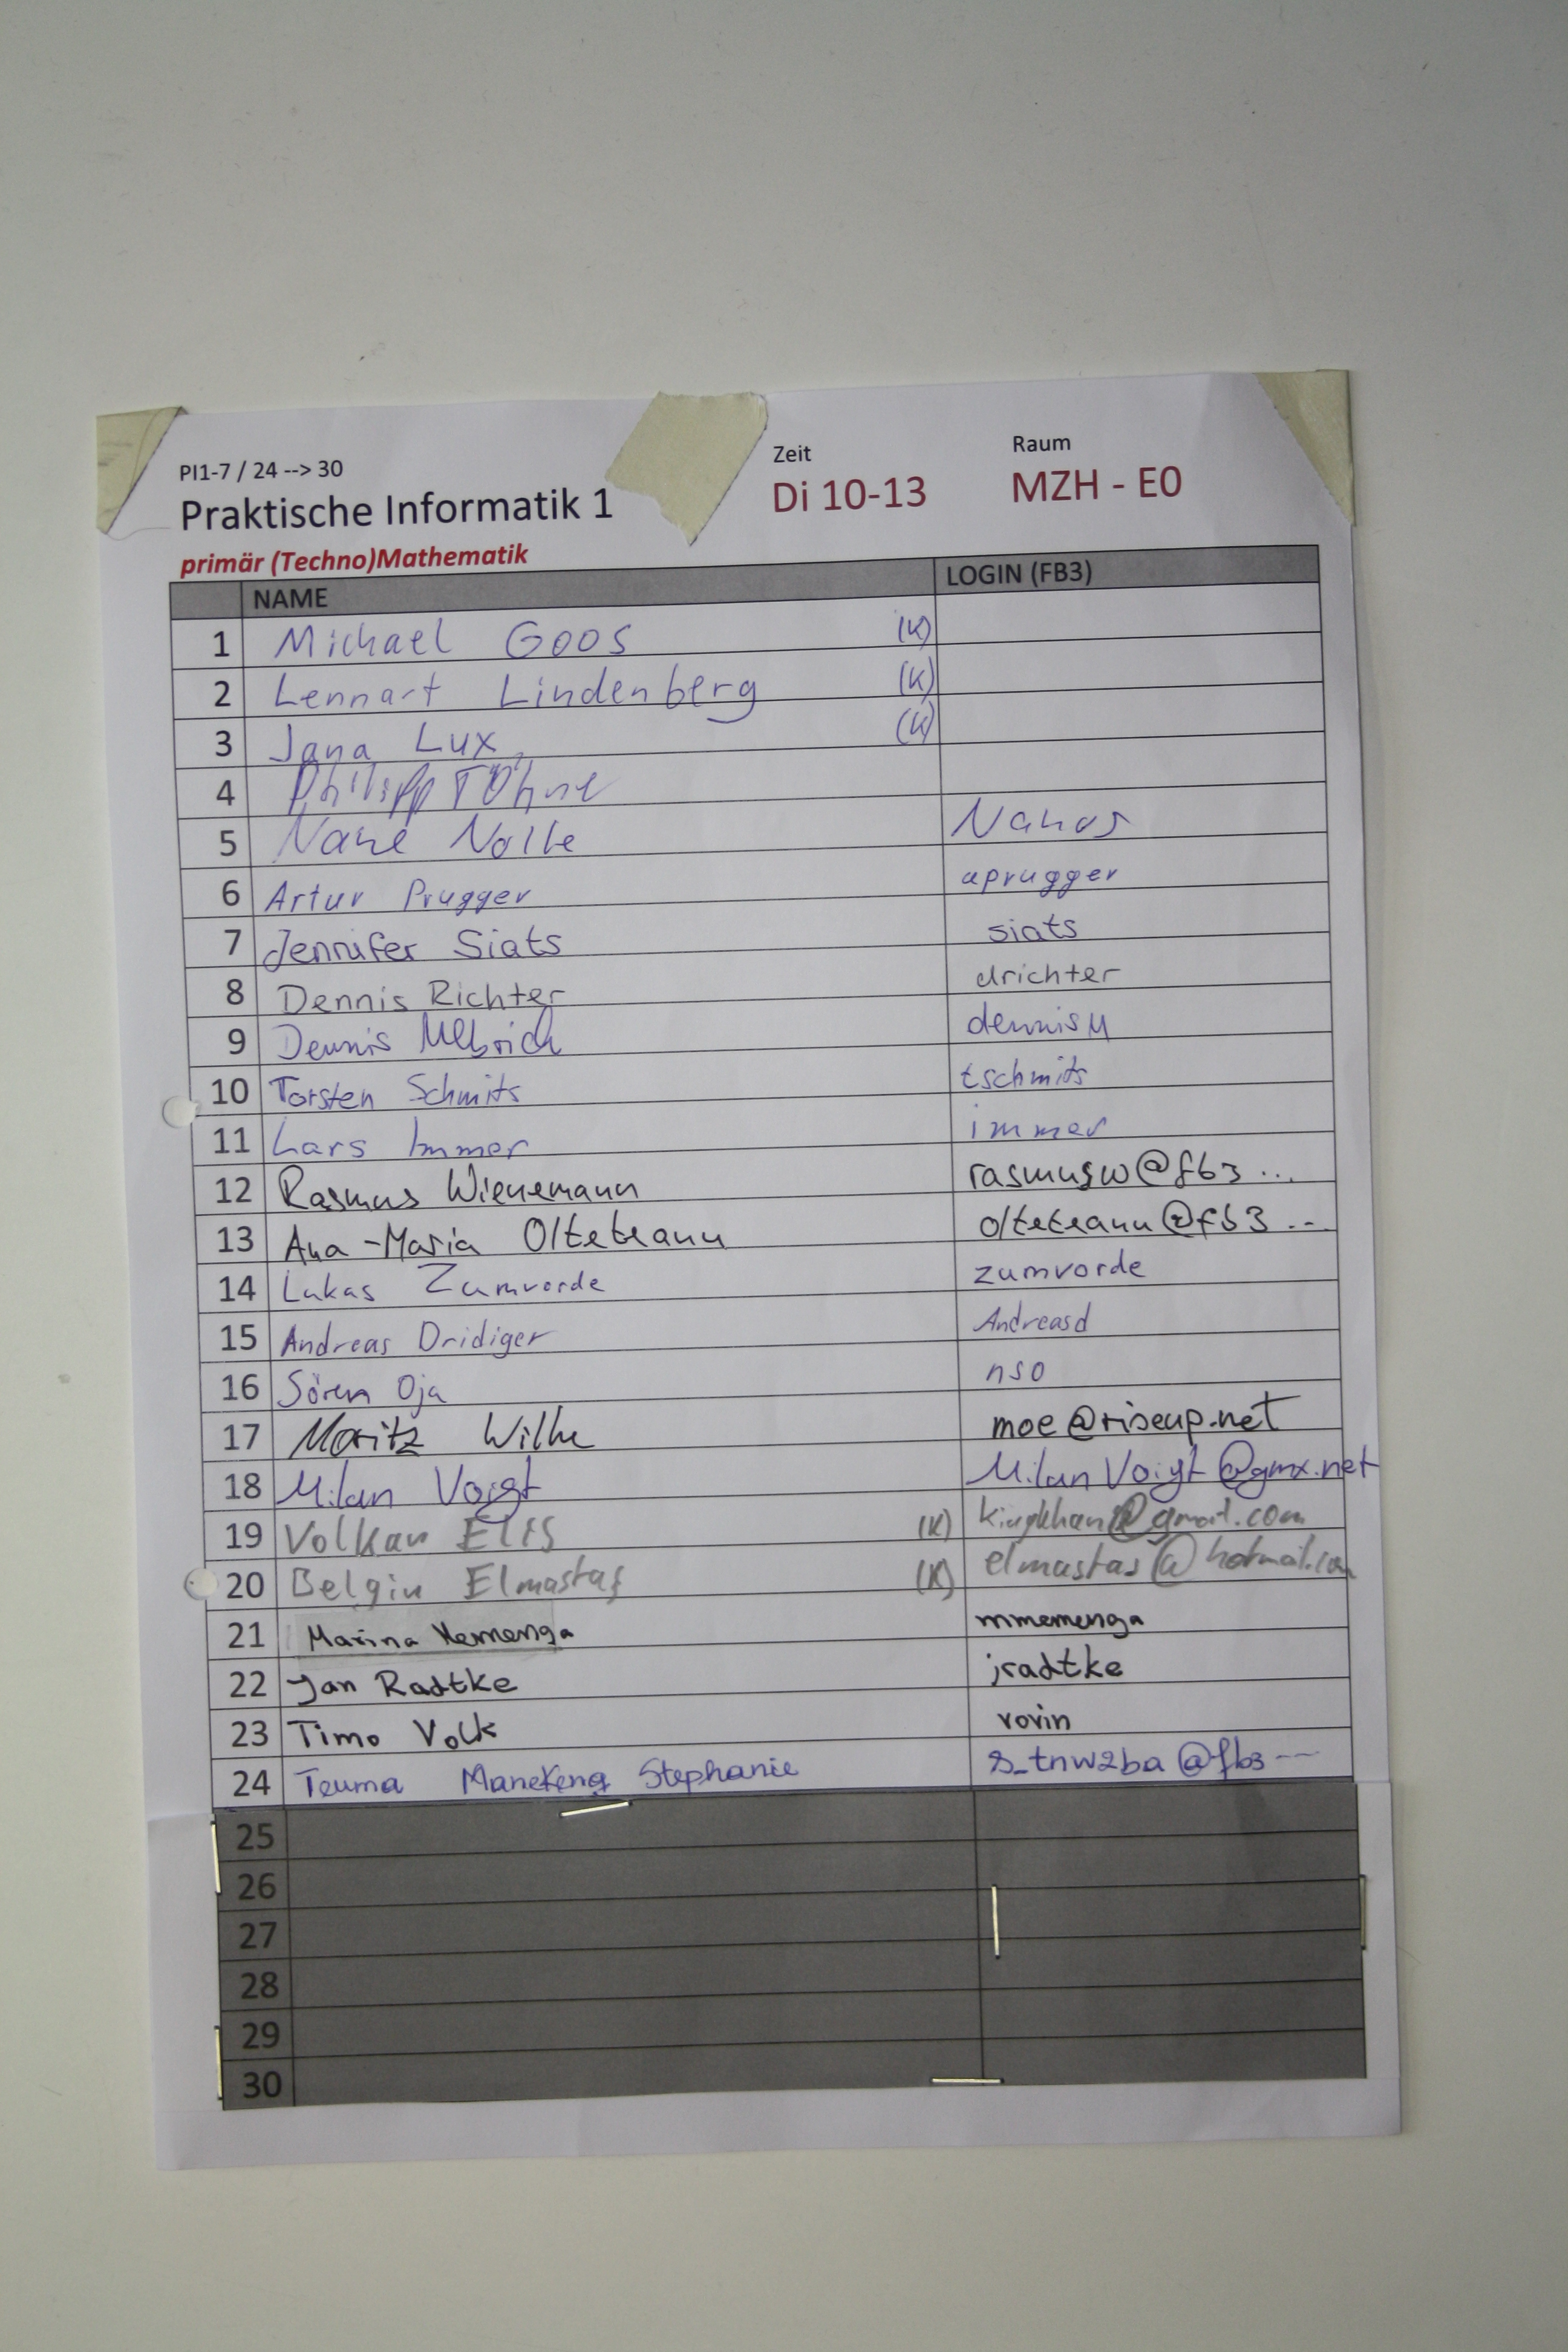 PI1-7 / 24 --> 30 Zeit Raum
Praktische Informatik 1 Di 10-13 MZH - E0
primär (Techno)Mathematik
NAME LOGIN (FB3)
1 Michael Goos (K)
2 Lennart Lindenberg (K)
3 Jana Lux (K)
4 Philipp
5 Nolle
6 Artur Prugger aprugger
7 Jennifer Siats siats
8 Dennis Richter drichter
9 Dennis Ulbrich
10 Torsten Schmits tschmits
11 Lars Immer immer
12 Rasmus Wienemann rasmusw@fb3 ...
13 Ana-Maria Olteteanu olteteanu@fb3 ...
14 Lukas Zumvorde zumvorde
15 Andreas Dridiger Andreasd
16 Sören Oja nso
17 Moritz moe@riseup.net
18 Milan Voigt Milan Voigt @gmx.net
19 Volkan Elis (K)
20 Belgin Elmastaş (K) elmastas@hotmail.com
21 Marina Memenga mmemenga
22 Jan Radtke jradtke
23 Timo Volk rovin
24 Teuma Manekeng Stephanie s_tnw2ba @fb3 --
25
26
27
28
29
30